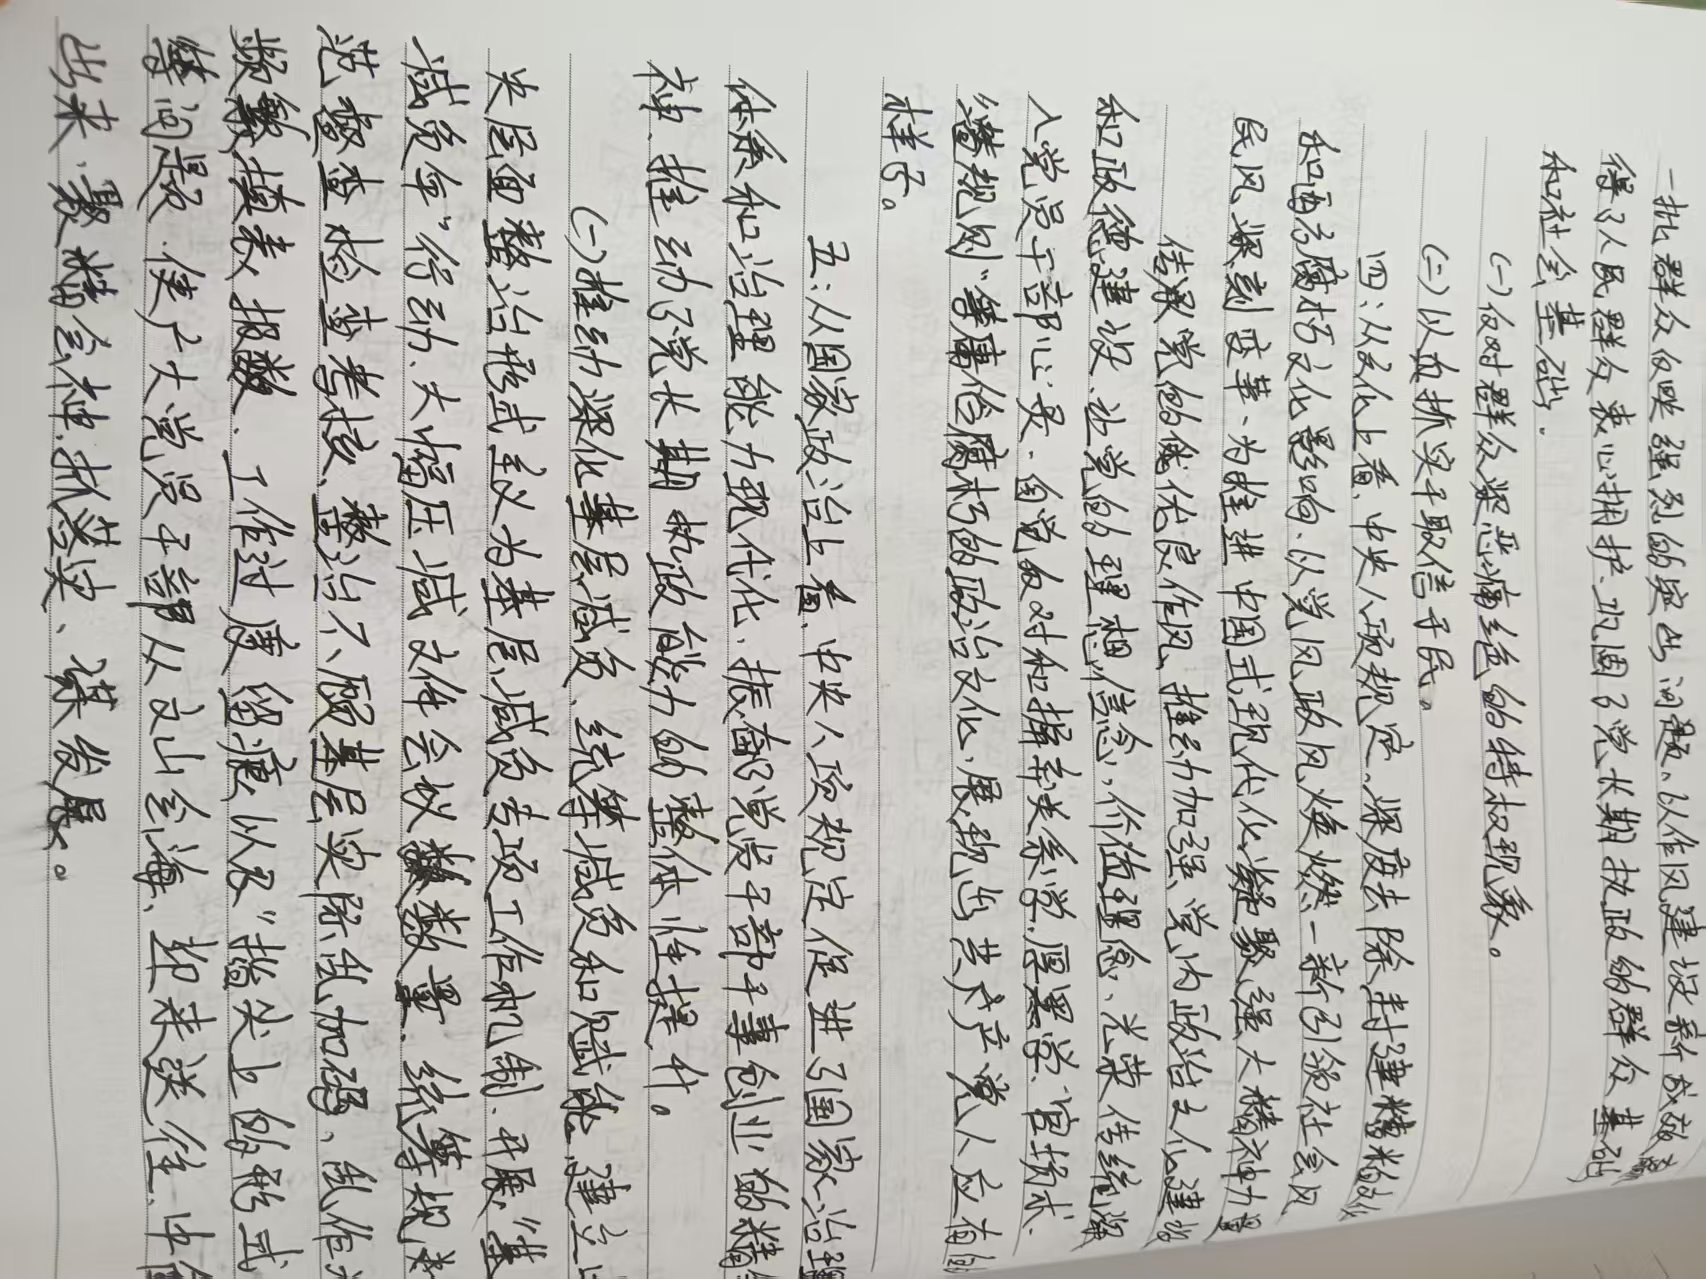 一批群众反映强烈的突出问题、以作风建设新成效
得了人民群众衷心拥护、巩固了党长期执政的群众基础
和社会基础.
(一)反对群众深恶痛绝的特权现象。
(二)以真抓实干取信于民。
四:从文化上看、中央八项规定、深度去除封建糟粕文化
和西方腐朽文化影响.以党风政风焕然一新引领社会风
民风深刻变革、为推进中国式现代化凝聚强大精神力量
传承党的优良作风、推动加强党内政治文化建设
和政德建设.让党的理想信念,价值理念、光荣传统深
入党员干部心灵.自觉反对和摒弃关系学.厚黑学、官场术.
"潜规则"等庸俗腐朽的政治文化、展现出共产党人应有的
样子。
五:从国家政治上看、中央八项规定促进了国家治理
体系和治理能力现代化、振奋了党员干部干事创业的精
神、推动了党长期执政能力的整体性提升。
(一)推动深化基层减负、统筹减负和赋能、建立
央层面整治形式主义为基层减负专项工作机制、开展"基
减负年"行动、大幅压减文件会议数量.统筹规
范督查检查考核、整治不顾基层实际乱加码、乱作
频繁填表报数、工作过度留痕以及"指尖上的形式
等问题、使广大党员干部从文山会海、迎来送往、中
出来、聚精会神抓落实、谋发展。